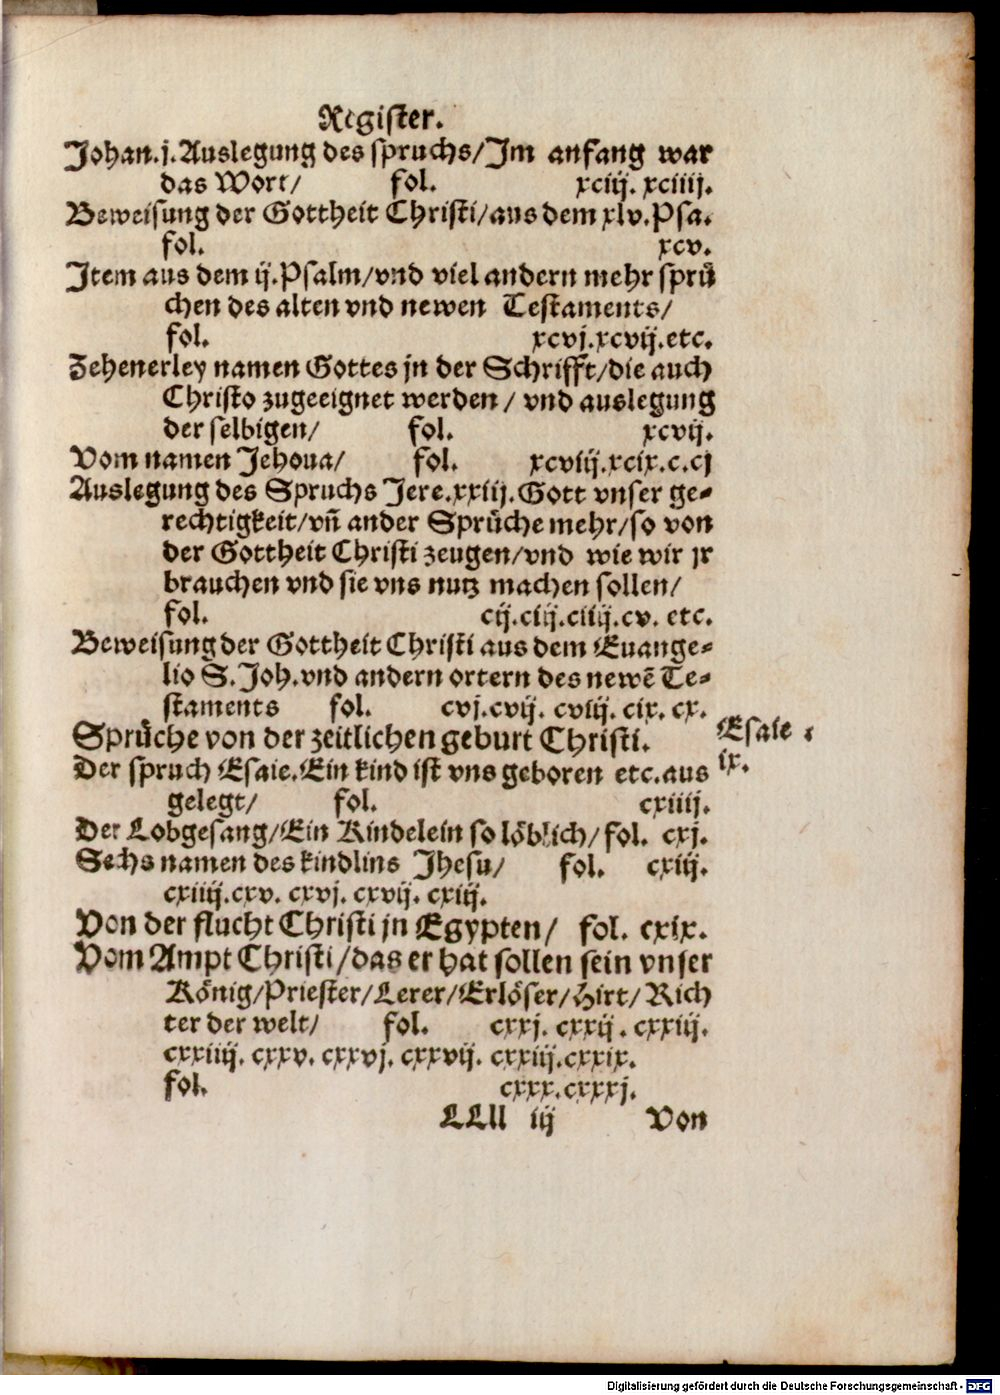 Register.
Johan.j.Auslegung des spruchs/Im anfang war
das Wort/ fol. xciij. xciiij.
Beweisung der Gottheit Christi/aus dem xlv.Psa.
fol. xcv.
Item aus dem ij.Psalm/vnd viel andern mehr sprü
chen des alten vnd newen Testaments/
fol. xcvj.xcvij.etc.
Zehenerley namen Gottes jn der Schrifft/die auch
Christo zugeeignet werden/ vnd auslegung
der selbigen/ fol. xcvij.
Vom namen Jehoua/ fol. xcviij.xcix.c.cj
Auslegung des Spruchs Jere.xxiij.Gott vnser ge-
rechtigkeit/vñ ander Sprüche mehr/so von
der Gottheit Christi zeugen/vnd wie wir jr
brauchen vnd sie vns nutz machen sollen/
fol. cij.ciij.ciiij.cv. etc.
Beweisung der Gottheit Christi aus dem Euange-
lio S.Joh.vnd andern ortern des newẽ Te-
staments fol. cvj.cvij. cviij. cix. cx.
Sprüche von der zeitlichen geburt Christi.
Esaie
ix.
Der spruch Esaie.Ein kind ist vns geboren etc.aus
gelegt/ fol. cxiiij.
Der Lobgesang/Ein Kindelein so löblich/fol. cxj.
Sechs namen des kindlins Jhesu/ fol. cxiij.
cxiiij.cxv. cxvj. cxvij. cxiij.
Von der flucht Christi jn Egypten/ fol. cxix.
Vom Ampt Christi/das er hat sollen sein vnser
König/Priester/Lerer/Erlöser/Hirt/Rich
ter der welt/ fol. cxxj. cxxij. cxxiij.
cxxiiij. cxxv. cxxvj. cxxvij. cxxiij.cxxix.
fol. cxxx.cxxxj.
LLll iij Von
Digitalisierung gefördert durch die Deutsche Forschungsgemeinschaft - DFG